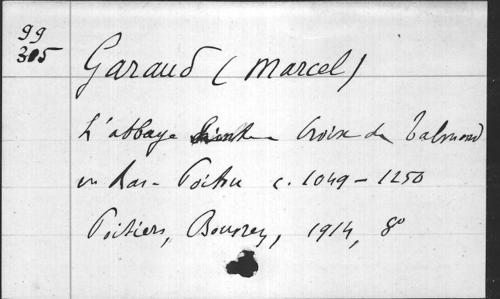 99
305
Garaud (Marcel)
L'abbaye Sainte Croix de Talmond
en Bas-Poitou c. 1049-1250
Poitiers, Bousrez, 1914, 8°